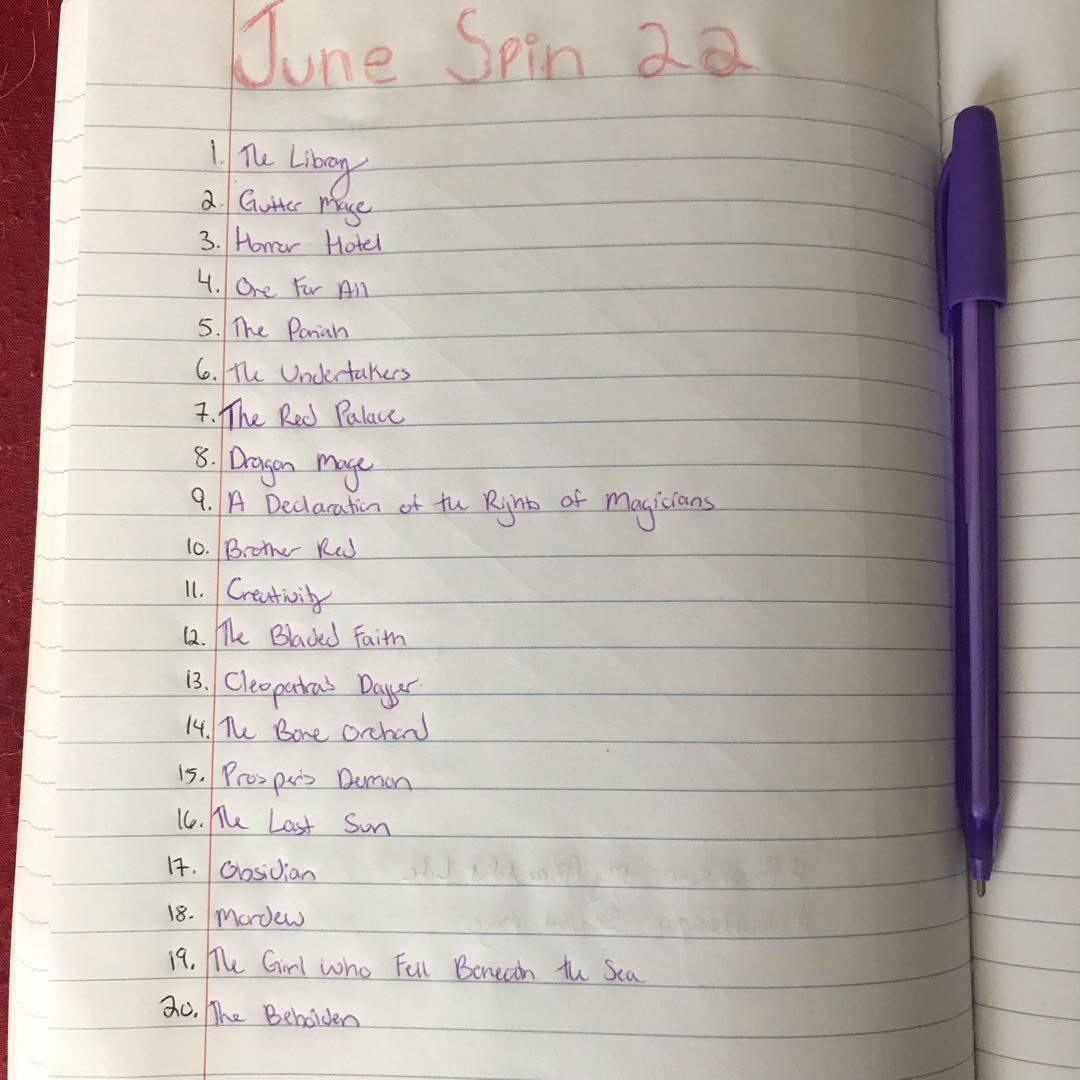 June Spin 22
1. The Library
2. Gutter Mage
3. Horror Hotel
4. One For All
5. The Pariah
6. The Undertakers
7. The Red Palace
8. Dragon Mage
9. A Declaration of the Rights of Magicians
10. Brother Red
11. Creativity
12. The Bladed Faith
13. Cleopatra's Dagger
14. The Bone Orchard
15. Prosper's Demon
16. The Last Sun
17. Obsidian
18. Mordew
19. The Girl Who Fell Beneath the Sea
20. The Beholden